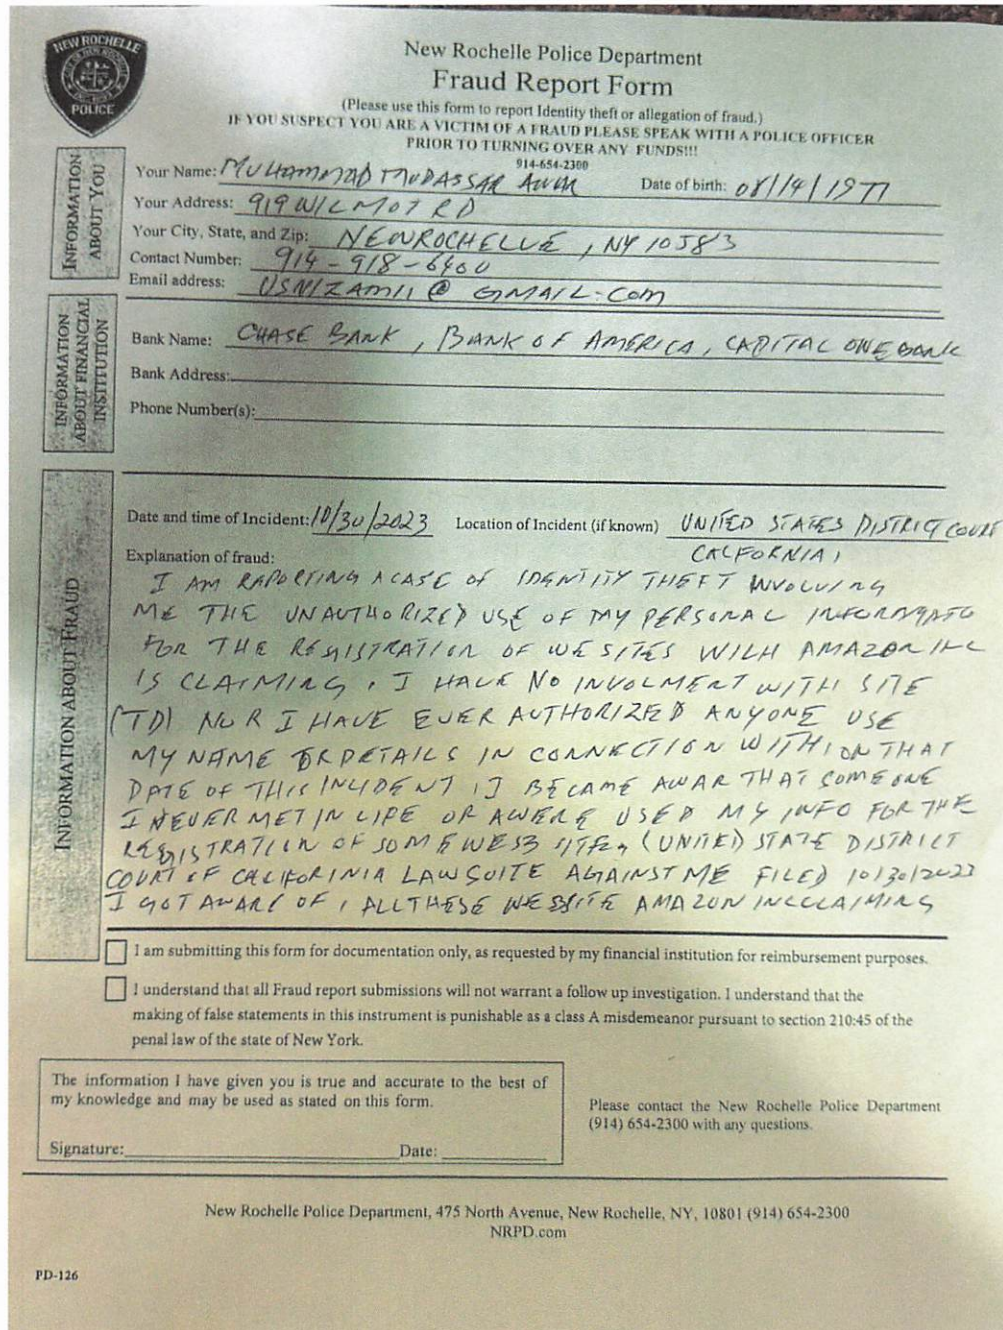 NEW ROCHELLE
POLICE
New Rochelle Police Department
Fraud Report Form
(Please use this form to report Identity theft or allegation of fraud.)
IF YOU SUSPECT YOU ARE A VICTIM OF A FRAUD PLEASE SPEAK WITH A POLICE OFFICER
PRIOR TO TURNING OVER ANY FUNDS!!!
914-654-2300
INFORMATION
ABOUT YOU
Your Name: MUHAMMAD MUDASSAR Date of birth:
Your Address: 919 WILMOT RD
Your City, State, and Zip: NEWROCHELLE, NY 10583
Contact Number: 914-918-6400
Email address: USNIZAMII@GMAIL.COM
INFORMATION
ABOUT FINANCIAL
INSTITUTION
Bank Name: CHASE BANK, BANK OF AMERICA, CAPITAL ONE BANK
Bank Address:
Phone Number(s):
INFORMATION ABOUT FRAUD
Date and time of Incident: 10/30/2023 Location of Incident (if known) UNITED STATES DISTRICT COURT
CALFORNIA,
Explanation of fraud:
I AM RAPORTING A CASE OF IDENTITY THEFT INVOLVING
ME THE UNAUTHORIZED USE OF MY PERSONAL
FOR THE REGISTRATION OF WE SITES WITH AMAZON INC
IS CLAIMING. I HAVE NO INVOLMENT WITH SITE
(TD) NOR I HAVE EVER AUTHORIZED ANYONE USE
MY NAME OR DETAILS IN CONNECTION WITH, ON THAT
DATE OF THIS INCIDENT, I BECAME AWAR THAT SOMEONE
I NEVER MET IN LIFE OR AWERE USED MY INFO FOR THE
REGISTRATION OF SOME WEB SITE, (UNITED) STATE DISTRICT
COURT OF CALIFORINIA LAWSUITE AGAINST ME FILED 10/30/2023
I GOT AWARE OF, ALL THESE WEBSITE AMAZON INC CLAIMING
I am submitting this form for documentation only, as requested by my financial institution for reimbursement purposes.
I understand that all Fraud report submissions will not warrant a follow up investigation. I understand that the
making of false statements in this instrument is punishable as a class A misdemeanor pursuant to section 210:45 of the
penal law of the state of New York.
The information I have given you is true and accurate to the best of
my knowledge and may be used as stated on this form.
Signature: Date:
Please contact the New Rochelle Police Department
(914) 654-2300 with any questions.
New Rochelle Police Department, 475 North Avenue, New Rochelle, NY, 10801 (914) 654-2300
NRPD.com
PD-126